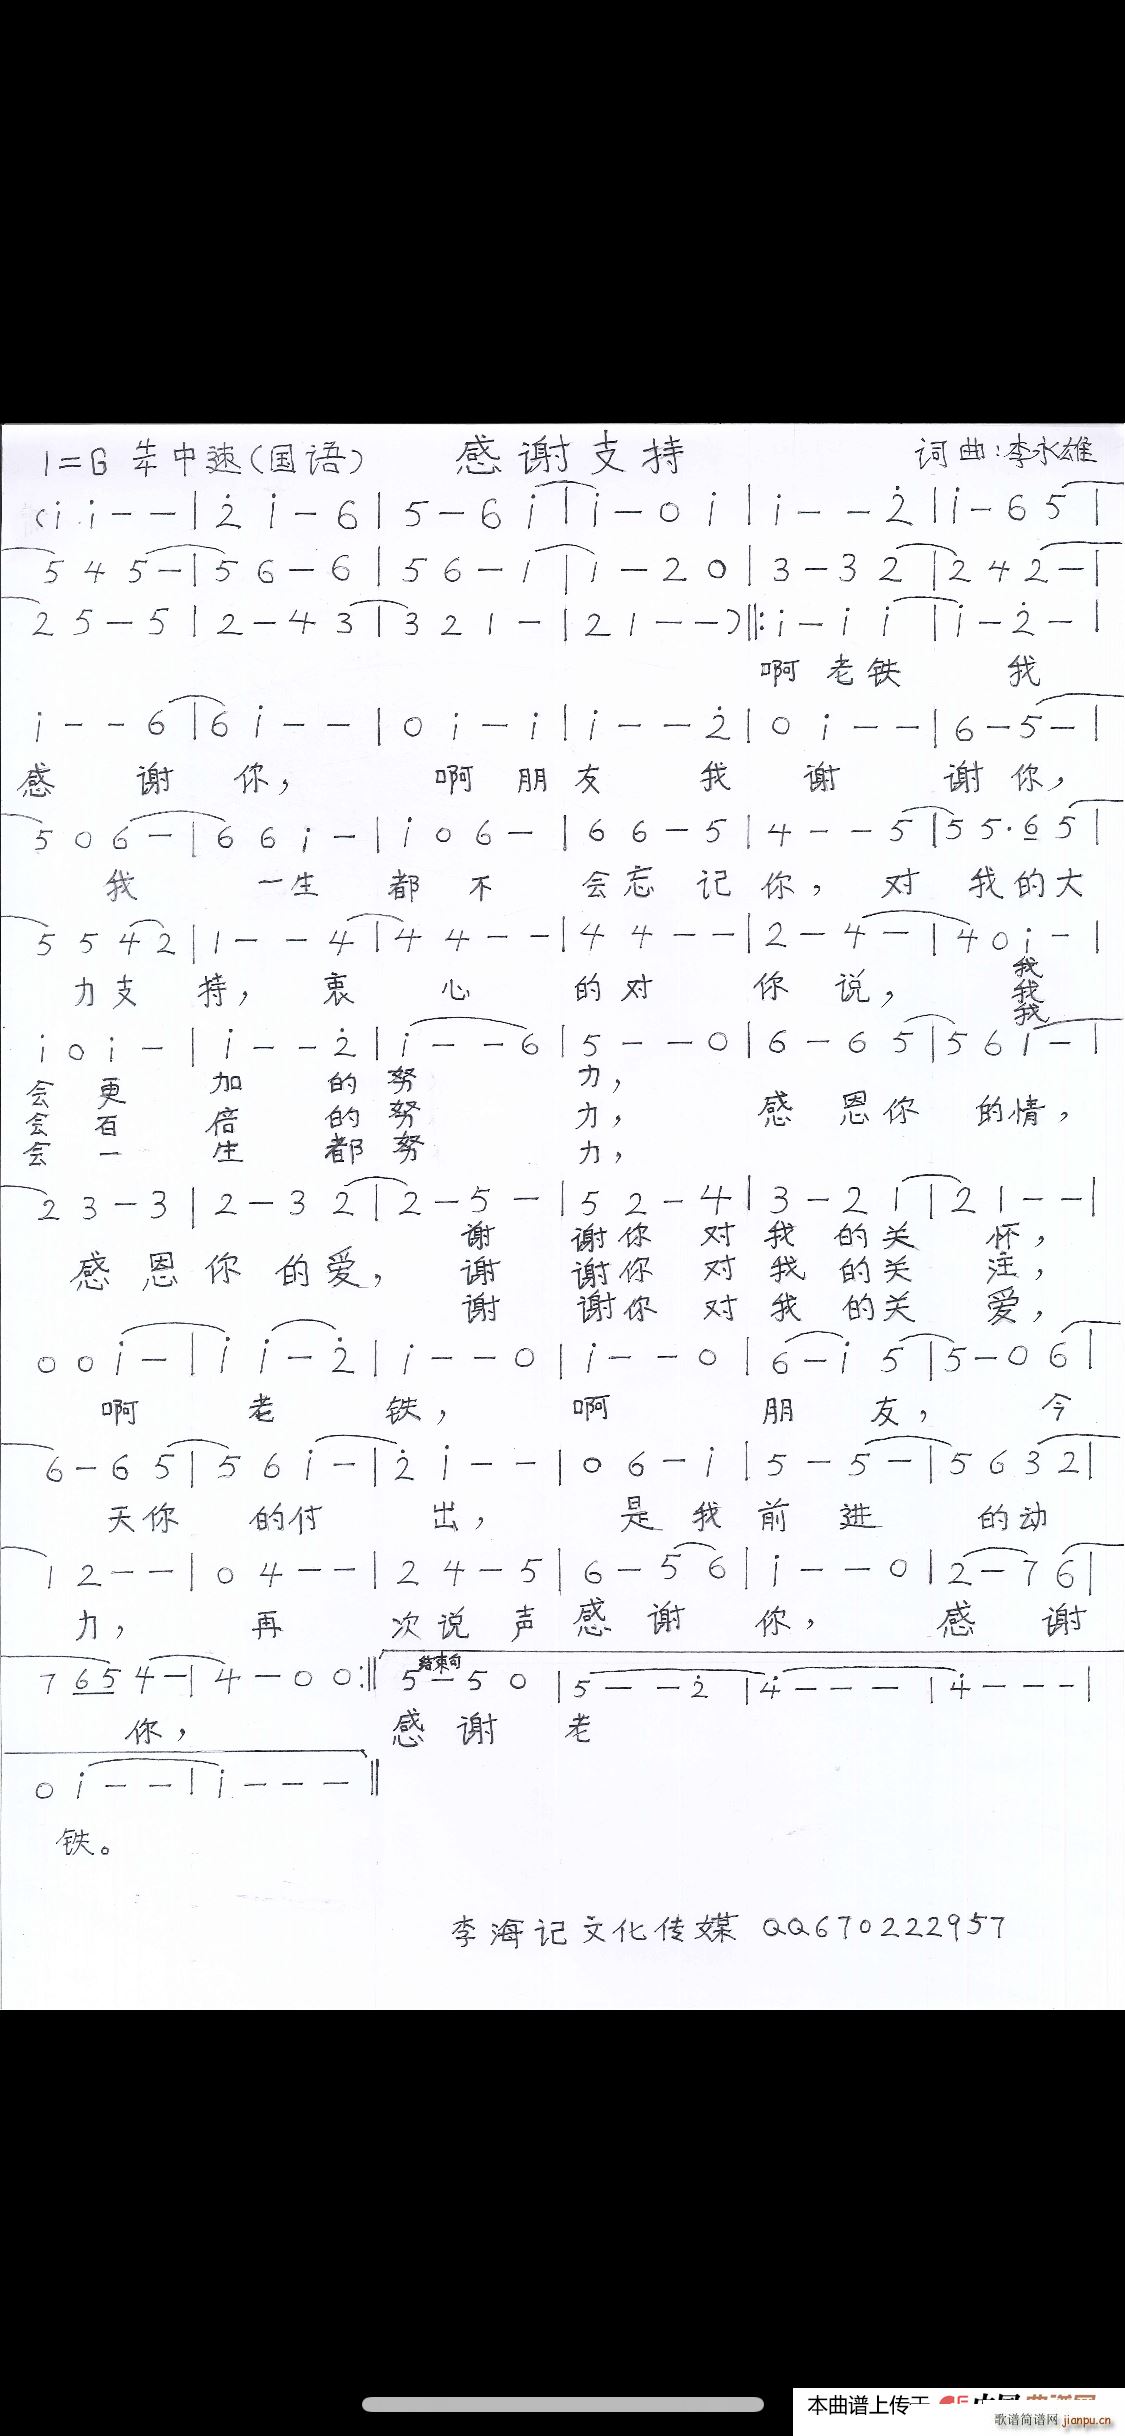 1=G 4/4 中速(国语) 感谢支持 词曲:李永雄
(i i - - | 2̇ i - 6 | 5 - 6 i | i - 0 i | i - - 2̇ | i - 6 5 |
5 4 5 - | 5 6 - 6 | 5 6 - 1 | 1 - 2 0 | 3 - 3 2 | 2 4 2 - |
2 5 - 5 | 2 - 4 3 | 3 2 1 - | 2 1 - - ) ‖: i - i i | i - 2̇ - |
啊 老 铁 我
i - - 6 | 6 i - - | 0 i - i | i - - 2̇ | 0 i - - | 6 - 5 - |
感 谢 你, 啊 朋 友 我 谢 谢 你,
5 0 6 - | 6 6 i - | i 0 6 - | 6 6 - 5 | 4 - - 5 | 5 5· 6 5 |
我 一 生 都 不 会 忘 记 你, 对 我 的 大
5 5 4 2 | 1 - - 4 | 4 4 - - | 4 4 - - | 2 - 4 - | 4 0 i - |
力 支 持, 衷 心 的 对 你 说, 我
我
我
i 0 i - | i - - 2̇ | i - - 6 | 5 - - 0 | 6 - 6 5 | 5 6 1 - |
会 更 加 的 努 力,
会 百 倍 的 努 力, 感 恩 你 的 情,
会 一 生 都 努 力,
2 3 - 3 | 2 - 3 2 | 2 - 5 - | 5 2 - 4 | 3 - 2 1 | 2 1 - - |
谢 谢 你 对 我 的 关 怀,
感 恩 你 的 爱, 谢 谢 你 对 我 的 关 注,
谢 谢 你 对 我 的 关 爱,
0 0 i - | i i - 2̇ | i - - 0 | i - - 0 | 6 - i 5 | 5 - 0 6 |
啊 老 铁, 啊 朋 友, 今
6 - 6 5 | 5 6 i - | 2̇ i - - | 0 6 - i | 5 - 5 - | 5 6 3 2 |
天 你 的 付 出, 是 我 前 进 的 动
1 2 - - | 0 4 - - | 2 4 - 5 | 6 - 5 6 | i - - 0 | 2 - 7 6 |
力, 再 次 说 声 感 谢 你, 感 谢
结束句
7 6 5 4 - | 4 - 0 0 :‖ 5 - 5 0 | 5 - - 2̇ | 4̇ - - - | 4̇ - - - |
你, 感 谢 老
0 i - - | i - - - ‖
铁。
李海记文化传媒 QQ670222957
本曲谱上传于
歌谱简谱网 jianpu.cn